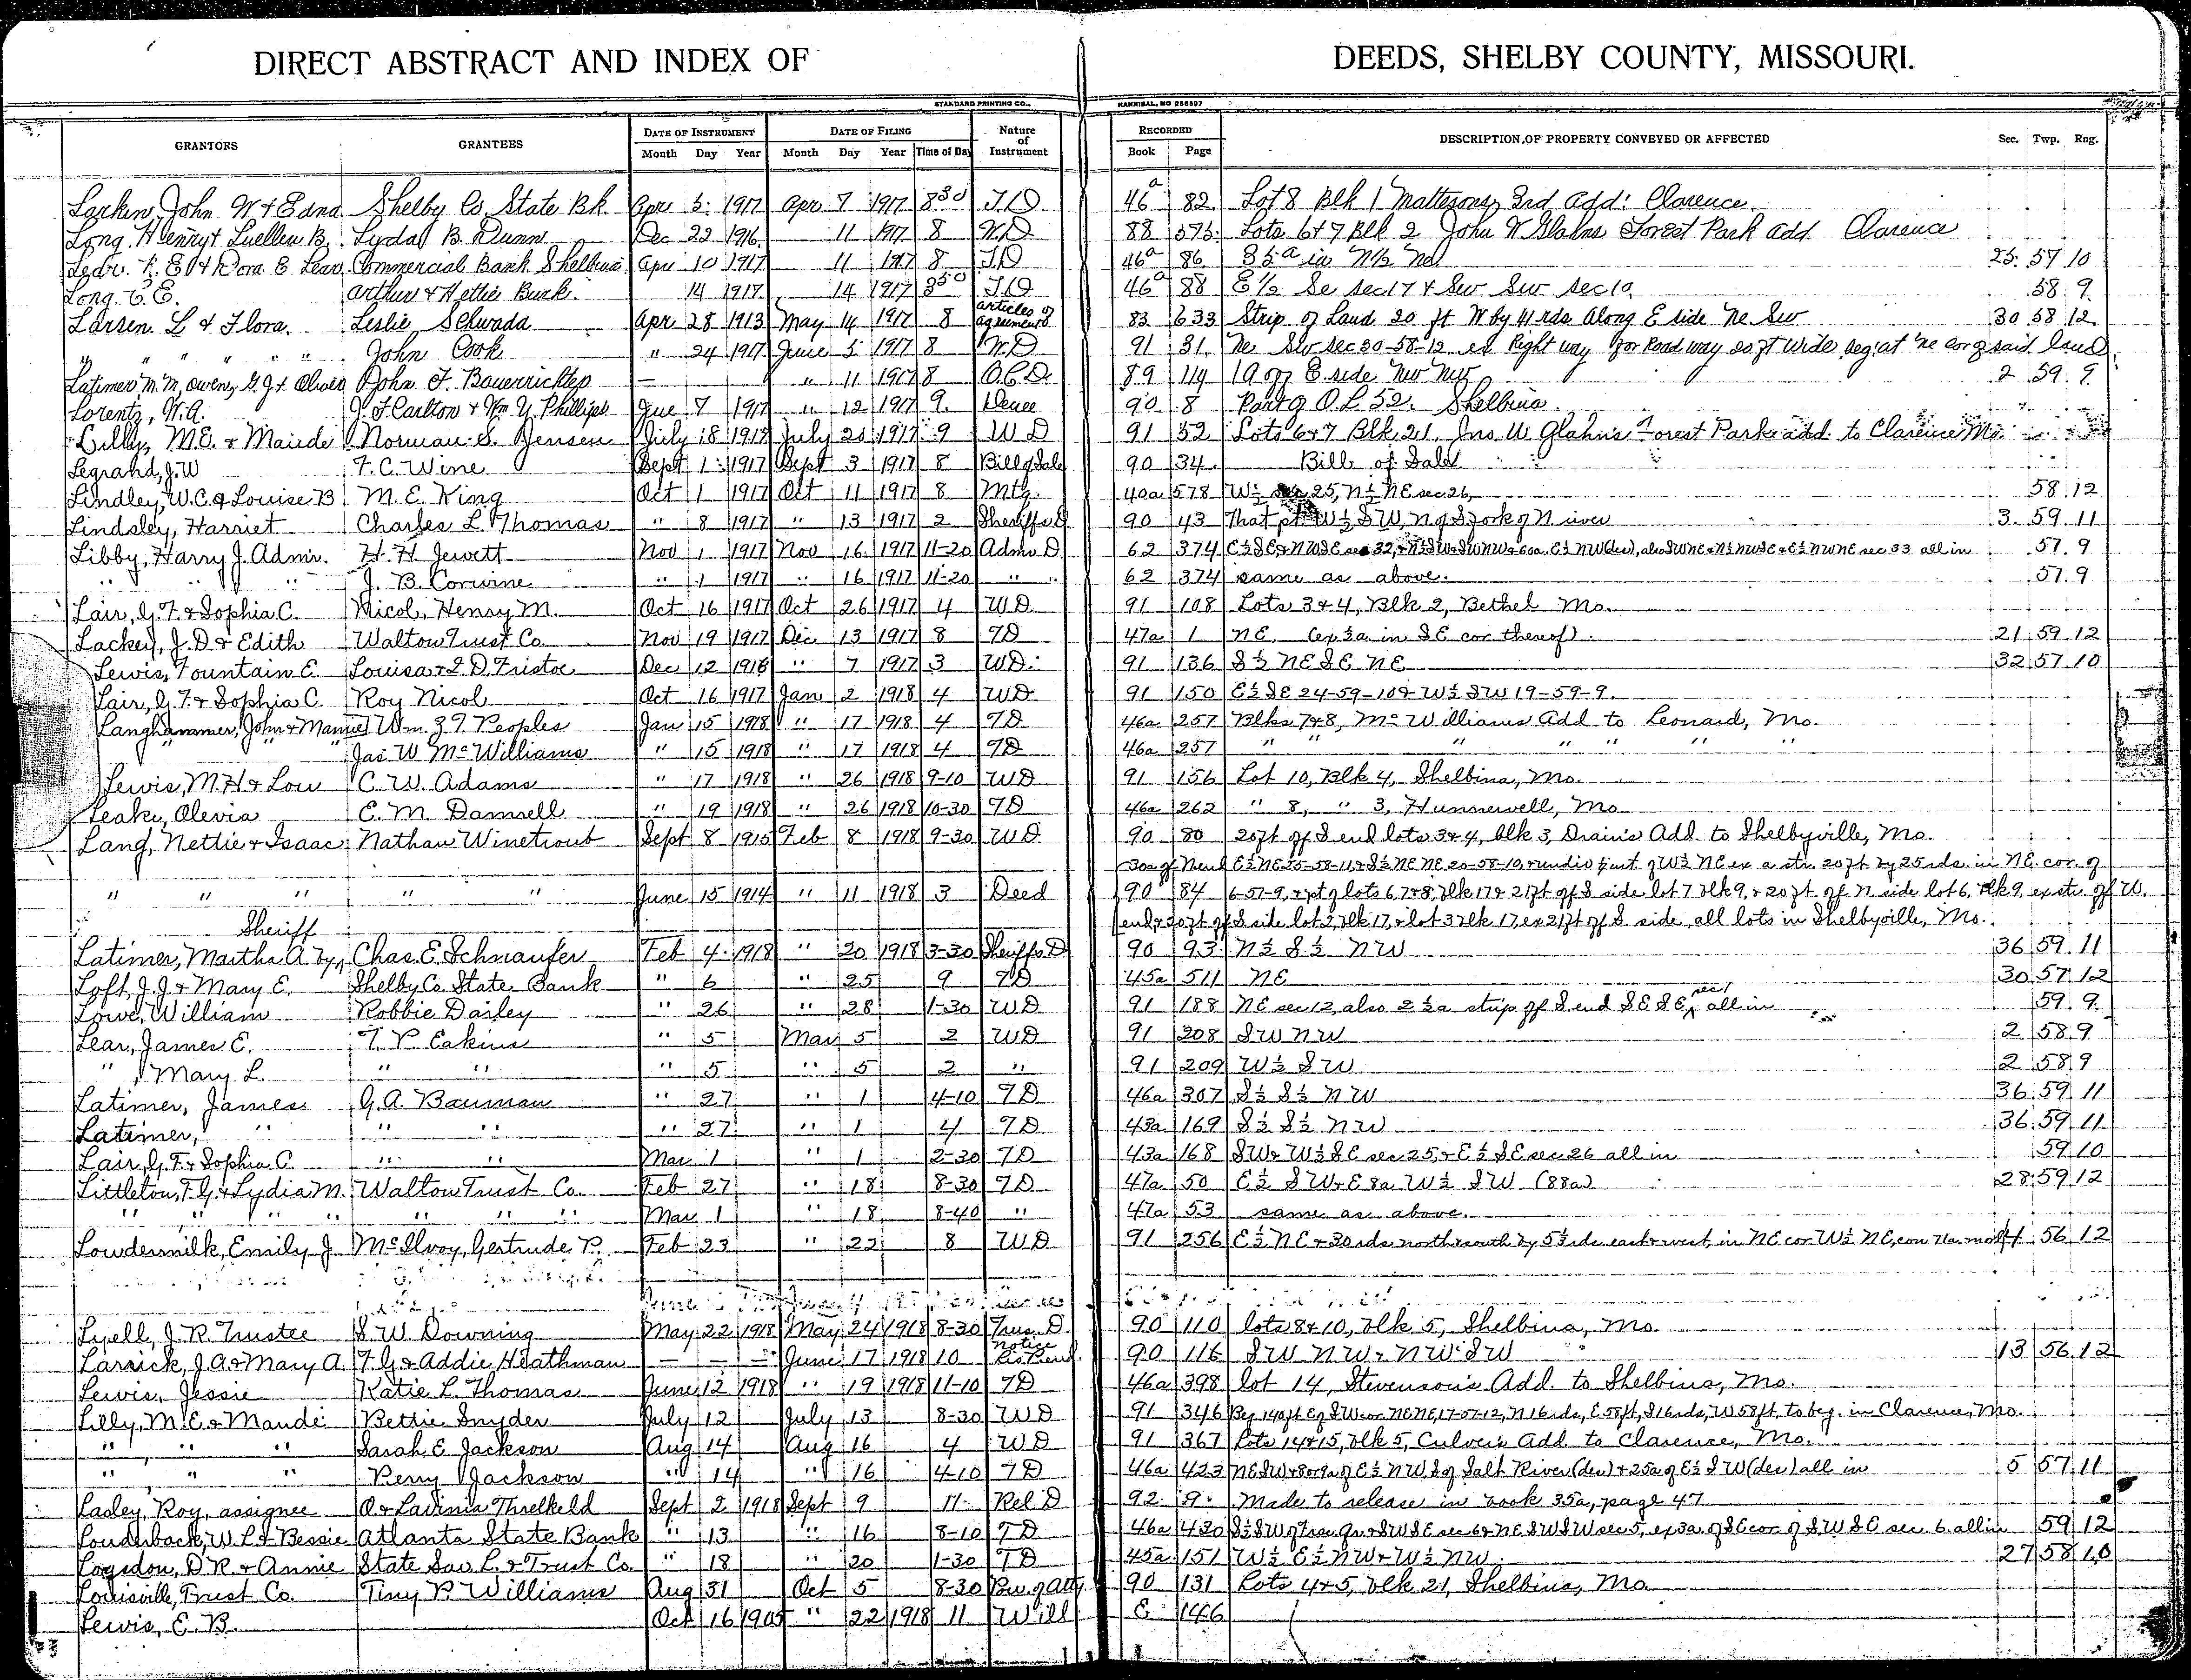 DIRECT ABSTRACT AND INDEX OF DEEDS, SHELBY COUNTY, MISSOURI.
STANDARD PRINTING CO., HANNIBAL, MO 256897
GRANTORS GRANTEES DATE OF INSTRUMENT DATE OF FILING Nature of Instrument RECORDED DESCRIPTION OF PROPERTY CONVEYED OR AFFECTED Sec. Twp. Rng.
Month Day Year Month Day Year Time of Day Book Page
Larkin, John W & Edna Shelby Co State Bk Apr 5 1917 Apr 7 1917 8 30 T.D 46a 82 Lot 8 Blk 1 Mattesons 3rd Add: Clarence.
Long, Henry & Luellen B. Lyda B. Dunn Dec 22 1916 11 1917 8 W.D 88 573 Lots 6 & 7 Blk 2 John W Glahns Forest Park Add Clarence
Lear. & Dora E Lear Commercial Bank Shelbina Apr 10 1917 11 1917 8 T.D 46a 86 in N½ 25 57 10
Long. C. E. Arthur & Hettie Buck. 14 1917 14 1917 8 30 T.D 46a 88 E½ Se Sec 17 & Sw Sw Sec 10 58 9
Larsen L & Flora. Leslie Schwada Apr 28 1913 May 14 1917 8 Articles of agreement 83 633 Strip of Land 20 ft W by 41 rds Along E side Ne Sw 30 58 12
" " " " " John Cook " 24 1917 June 5 1917 8 W.D 91 31 Ne Sw Sec 30-58-12 ex Right way for Road way 20 ft wide beg. at Ne cor of said land
Latimer M. M, Owen, G. J. & Olive John F. Bauerrichter — " 11 1917 8 Q.C.D 89 114 1 a off E side Nw Nw 2 59 9
Lorentz, W. A. J. F. Carlton & Wm Y. Phillips June 7 1917 " 12 1917 9 90 8 Part of O.L 52. Shelbina
Lilly, M. E. & Maude Norman S. Jensen July 18 1917 July 21 1917 9 W D 91 52 Lots 6 & 7 Blk 21. Jno. W Glahn's Forest Park add. to Clarence Mo.
Legrand, J. W F. C. Wine Sept 1 1917 Sept 3 1917 8 Bill of Sale 90 34 Bill of Sale
Lindley, W. C. & Louise B. M. E. King Oct 1 1917 Oct 11 1917 8 Mtg. 40a 578 W½ sec 25, N½ NE sec 26, 58 12
Lindsley, Harriet Charles L. Thomas " 8 1917 " 13 1917 2 Sheriffs D 90 43 That pt W½ SW, N of S fork of N river 3 59 11
Libby, Harry J. Admr. H. H. Jewett Nov 1 1917 Nov 16 1917 11-20 Admr D 62 374 E½ SE & NWSE sec 32, & N½ SW & SWNW & 60a E½ NW (des), also SWNE & N½ NWSE & E½ NWNE sec 33 all in 57 9
" " " J. B. Corwine " 1 1917 " 16 1917 11-20 " " 62 374 same as above. 57 9
Lair, G. F. & Sophia C. Nicol, Henry M. Oct 16 1917 Oct 26 1917 4 WD 91 108 Lots 3 & 4, Blk 2, Bethel Mo.
Lackey, J. D & Edith Walton Trust Co. Nov 19 1917 Dec 13 1917 8 TD 47a 1 NE, (ex ½a in SE cor thereof). 21 59 12
Lewis, Fountain E. Louisa & I. D. Fristoe Dec 12 1916 " 7 1917 3 WD. 91 136 S½ NE SE NE 32 57 10
Lair, G. F. & Sophia C. Roy Nicol Oct 16 1917 Jan 2 1918 4 WD 91 150 E½ SE 24-59-10 & W½ SW 19-59-9.
Langhammer, John & Mamie Wm. Z. T. Peoples Jan 15 1918 " 17 1918 4 TD 46a 257 Blks 7 & 8, McWilliams Add to Leonard, Mo.
" " " Jas. W. McWilliams " 15 1918 " 17 1918 4 TD 46a 257 " " " " " " "
Lewis, M. H & Lou C. W. Adams " 17 1918 " 26 1918 9-10 WD 91 156 Lot 10, Blk 4, Shelbina, Mo.
Leake, Olevia E. M. Damrell " 19 1918 " 26 1918 10-30 TD 46a 262 " 8, " 3, Hunnewell, Mo
Lang, Nettie & Isaac Nathan Winetrout Sept 8 1915 Feb 8 1918 9-30 WD 90 80 20 ft off S end lots 3 & 4, blk 3, Drain's Add. to Shelbyville, Mo.
30a of N end E½ NE 25-58-11, & S½ NE NE 20-58-10, & undiv int of W½ NE ex a str. 20 ft by 25 rds. in NE. cor. of
" " " " " June 15 1914 " 11 1918 3 Deed 90 84 6-57-9, & pt of lots 6, 7 & 8, blk 17 & 21 ft off S side lot 7 blk 9, & 20 ft. off N side lot 6, blk 9, ex str. off W.
end & 20 ft off S side lot 2, blk 17, & lot 3 blk 17, ex 21 ft off S side, all lots in Shelbyville, Mo.
Sheriff
Latimer, Martha A by Chas. E. Schnaufer Feb 4 1918 " 20 1918 3-30 Sheriffs D 90 93 N½ S½ NW 36 59 11
Loft, J. J & Mary E. Shelby Co. State Bank " 6 " 25 9 TD 45a 511 NE 30 57 12
Lowe, William Robbie Dailey " 26 " 28 1-30 WD 91 188 NE sec 12, also 2½a strip off S end SE SE, sec 1 all in 59 9
Lear, James E. T. P. Eakins " 5 Mar 5 2 WD 91 208 SW NW 2 58 9
" , Mary L. " " " 5 " 5 2 " 91 209 W½ SW 2 58 9
Latimer, James G. A. Bauman " 27 " 1 4-10 TD 46a 307 S½ S½ NW 36 59 11
Latimer, " " " " 27 " 1 4 TD 43a 169 S½ S½ NW 36 59 11
Lair, G. F. & Sophia C. " " Mar 1 " 1 2-30 TD 43a 168 SW & W½ SE sec 25, & E½ SE sec 26 all in 59 10
Littleton, T. G. & Lydia M. Walton Trust Co. Feb 27 " 18 8-30 TD 47a 50 E½ SW & E 8a W½ SW (88a) 28 59 12
" " " " " " " Mar 1 " 18 8-40 " 47a 53 same as above.
Lowdermilk, Emily J McIlvoy, Gertrude P. Feb 23 " 22 8 WD 91 256 E½ NE & 30 rds north & south by 5½ rds east & west, in NE cor W½ NE, con 71a mol 4 56 12
Lyell, J. R. Trustee S. W. Downing May 22 1918 May 24 1918 8-30 Trus. D. 90 110 lots 8 & 10, blk 5, Shelbina, Mo.
Larrick, J. A & Mary A. F. G & Addie Heathman — — — June 17 1918 10 notice Lis Pend. 90 116 SW NW & NW SW 13 56 12
Lewis, Jessie Katie L. Thomas June 12 1918 " 19 1918 11-10 TD 46a 398 lot 14, Stevenson's Add. to Shelbina, Mo.
Lilly, M. E & Maude Bettie Snyder July 12 July 13 8-30 WD 91 346 Beg 140 ft E of SW cor NE NE, 17-57-12, N 16 rds, E 58 ft, S 16 rds, W 58 ft, to beg. in Clarence, Mo.
" " " Sarah E. Jackson Aug 14 Aug 16 4 WD 91 367 Lots 14 & 15, blk 5, Culver's Add to Clarence, Mo.
" " " Perry Jackson " 14 " 16 4-10 TD 46a 423 NESW & 8 or 9a of E½ NW S of Salt River (des) & 25a of E½ SW (des) all in 5 57 11
Lasley, Roy, assignee O & Lavinia Threlkeld Sept 2 1918 Sept 9 11 Rel D 92 9 Made to release in book 35a, page 47
Louderback, W. L & Bessie Atlanta State Bank " 13 " 16 8-10 TD 46a 430 S½ SW & SWSE sec 6 & NE SW SW sec 5, ex 3a of SE cor of SW SE sec. 6. all in 59 12
Logsdon, D R. & Annie State Sav. L. & Trust Co. " 18 " 20 1-30 TD 45a 151 W½ E½ NW & W½ NW. 27 58 10
Louisville, Trust Co. Tiny P. Williams Aug 31 Oct 5 8-30 Pow. of Atty 90 131 Lots 4 & 5, blk 21, Shelbina, Mo.
Lewis, E. B. Oct 16 1905 " 22 1918 11 Will E 146